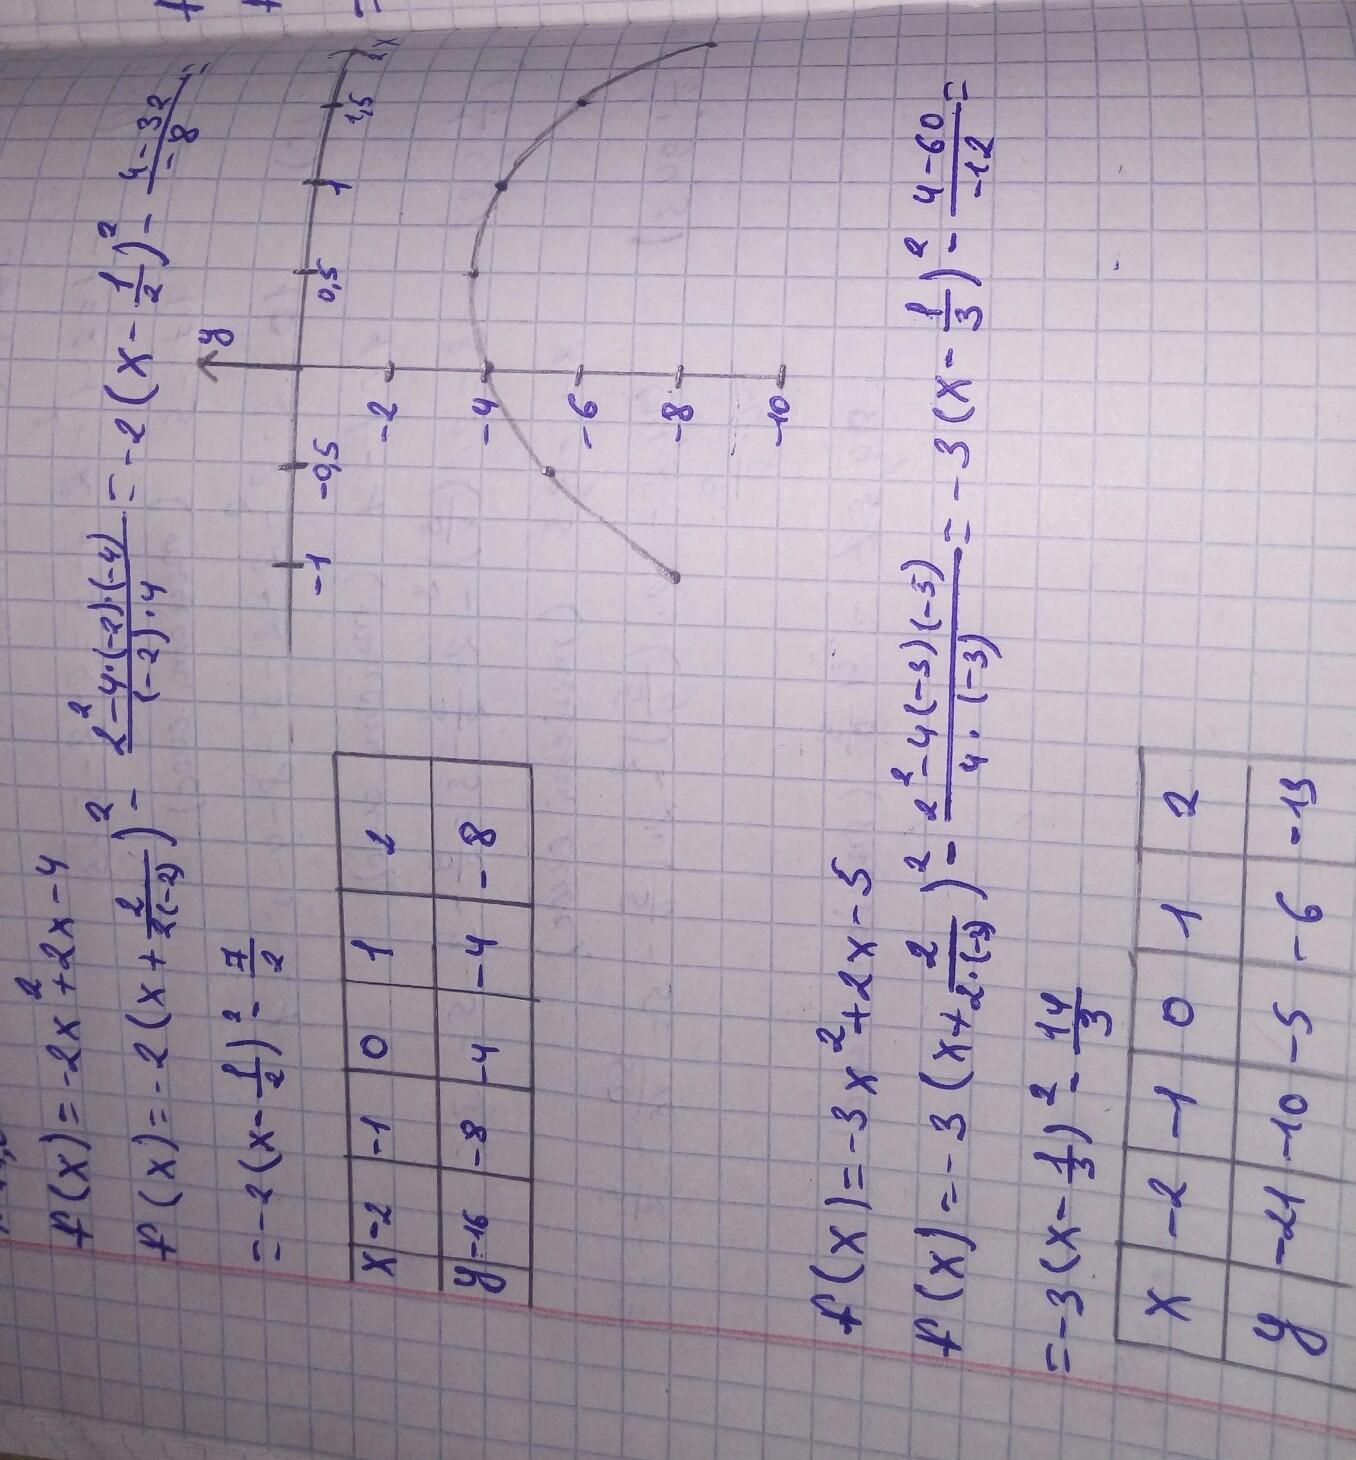 f(x)=-2x²+2x-4
f(x)=-2(x+2/2(-2))²-2²-4·(-2)·(-4)/(-2)·4=-2(x-1/2)²-4-32/-8=
=-2(x-1/2)²-7/2
x -2 -1 0 1 2
y -16 -8 -4 -4 -8
y
-1 -0,5 0,5 1 1,5 2 x
-2
-4
-6
-8
-10
f(x)=-3x²+2x-5
f(x)=-3(x+2/2·(-3))²-2²-4(-3)(-5)/4·(-3)=-3(x-1/3)²-4-60/-12=
=-3(x-1/3)²-14/3
x -2 -1 0 1 2
y -21 -10 -5 -6 -13